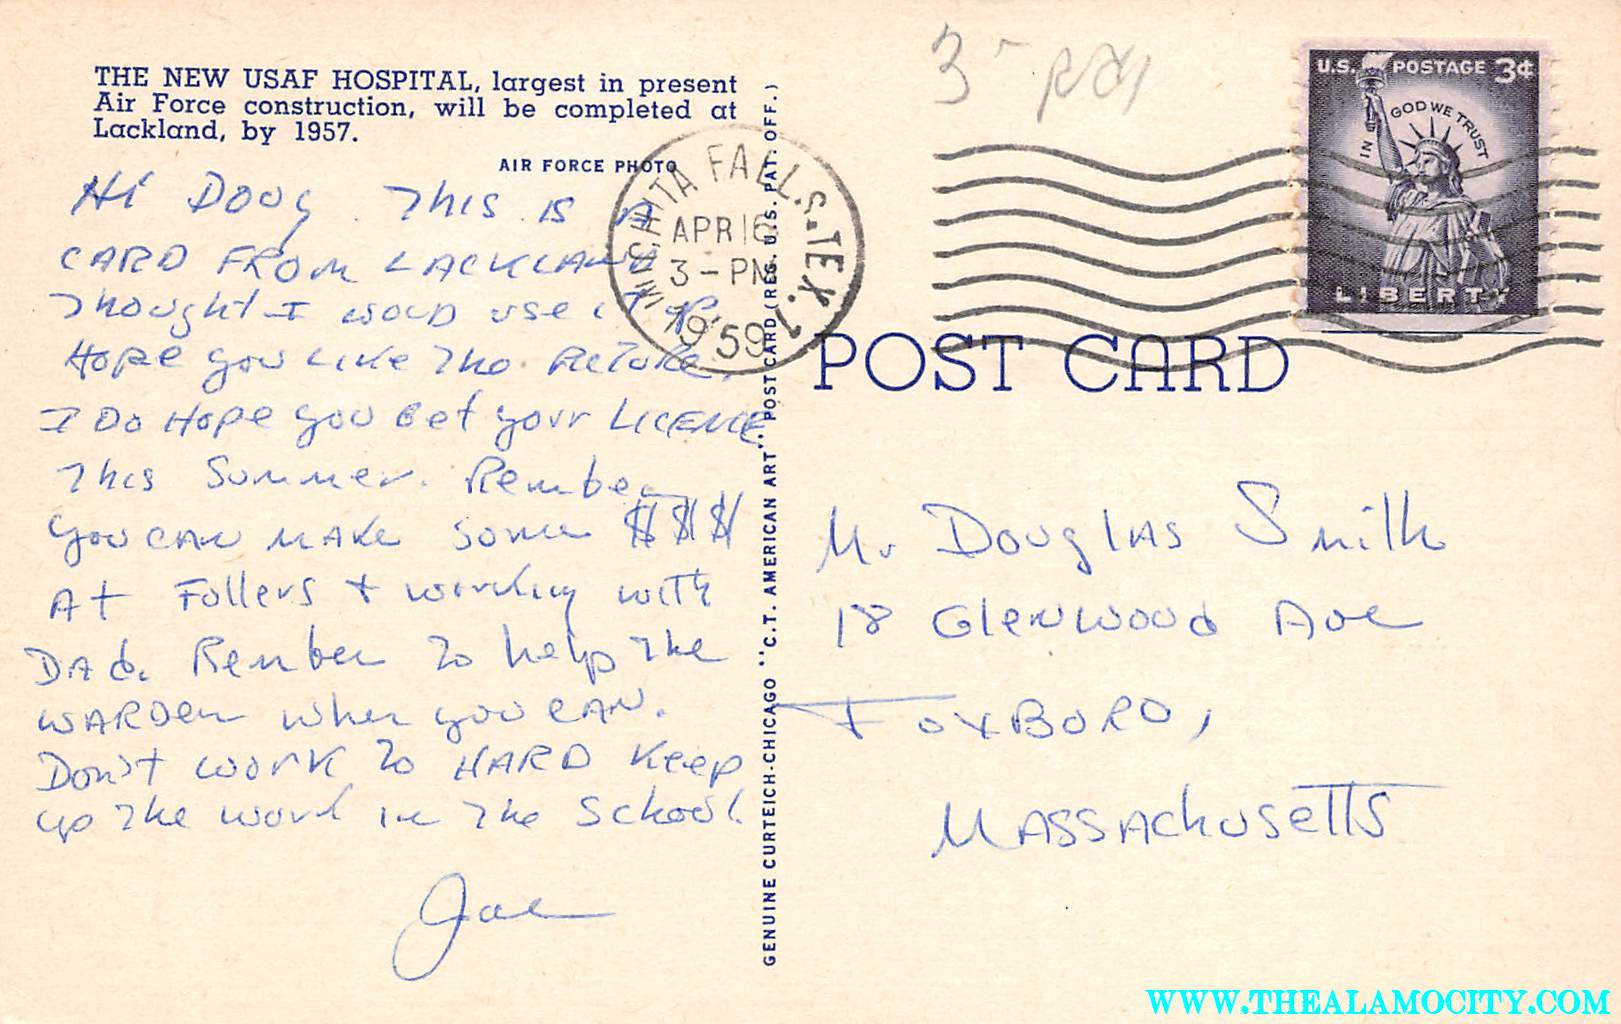 THE NEW USAF HOSPITAL, largest in present
Air Force construction, will be completed at
Lackland, by 1957.
AIR FORCE PHOTO
Hi Doug. This is A
CARD FROM LACKLAND
Thought I would use it
Hope you Like The Picture.
I Do Hope you Get your LICENCE
This Summer. Rember
you CAN MAKe some $$$
At Fullers + working with
DAd. Rember To help The
WARDen when you CAN.
Don't work To HARD Keep
up The work in The School.
Joe
GENUINE CURTEICH-CHICAGO "C.T. AMERICAN ART" POST CARD (REG. U.S. PAT. OFF.)
WICHITA FALLS. TEX. 1
APR 16
3-PM
1959
U.S. POSTAGE 3¢
IN GOD WE TRUST
LIBERTY
POST CARD
Mr DouglAs Smith
18 Glenwood Ave
FoxBoRo,
MASSAchusetts
WWW.THEALAMOCITY.COM